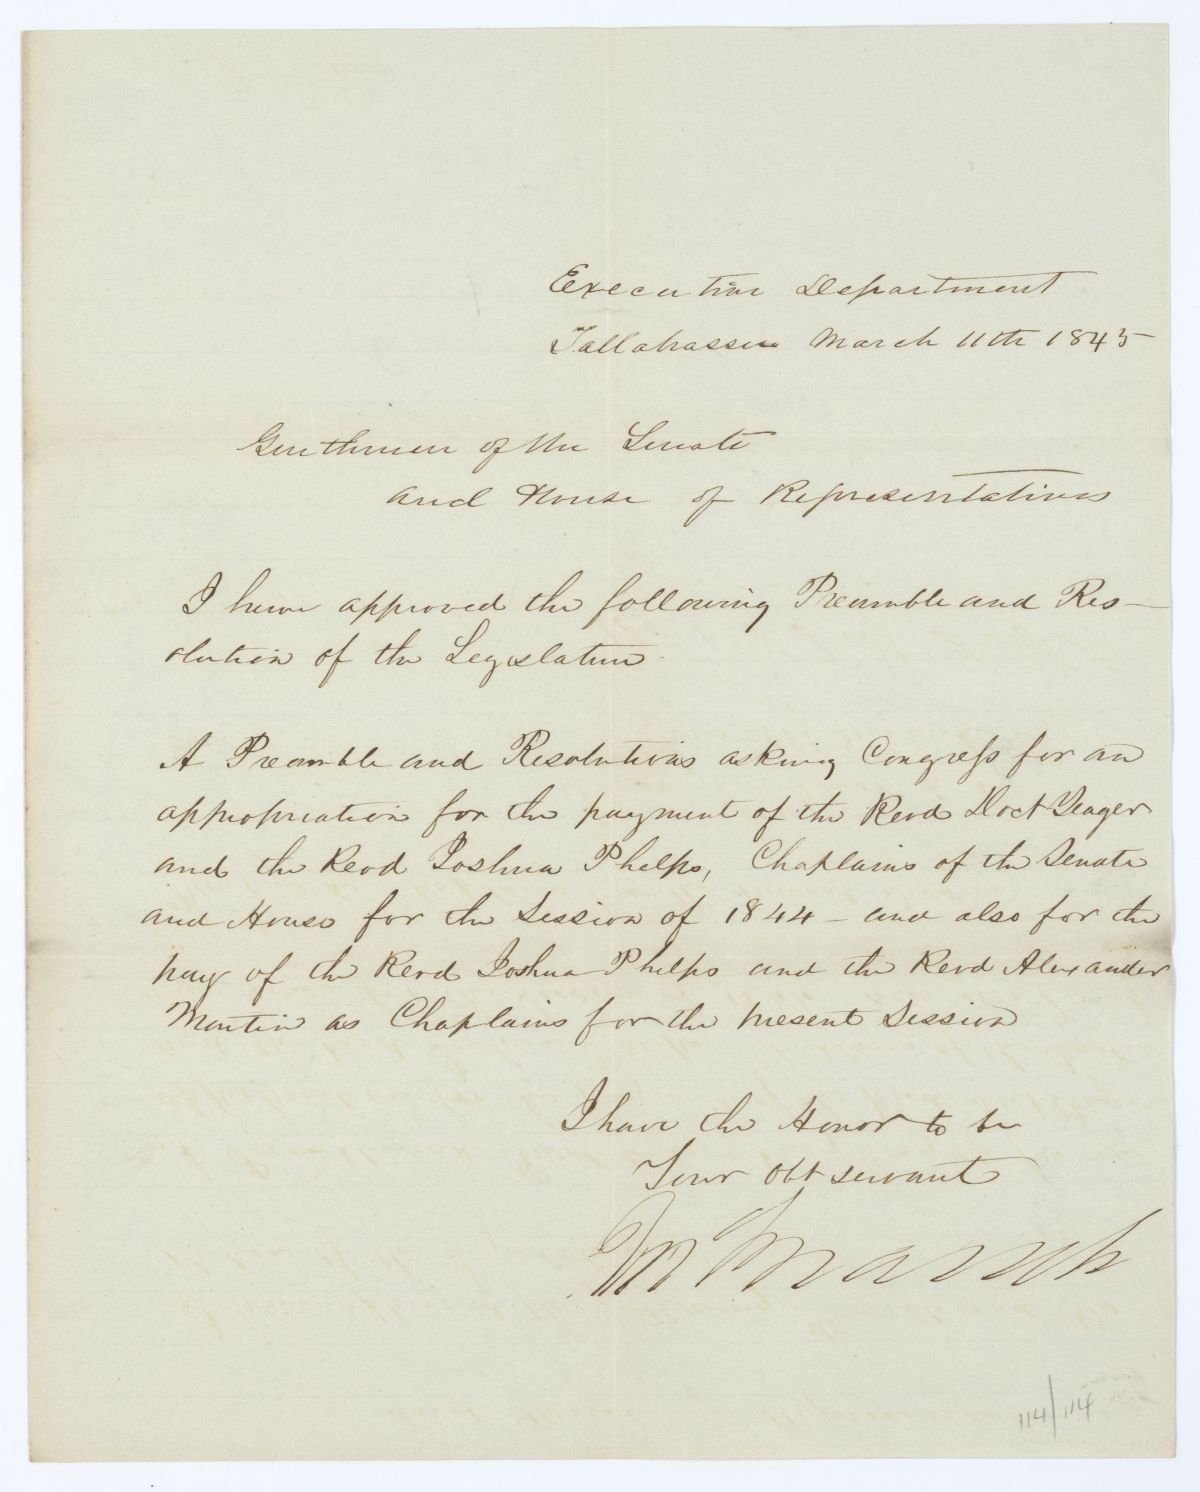 Executive Department
Tallahassee March 11th 1845
Gentlemen of the Senate
and House of Representatives
I have approved the following Preamble and Res-
olution of the Legislature
A Preamble and Resolutions asking Congress for an
appropriation for the payment of the Revd Doct Yeager
and the Revd Joshua Phelps, Chaplains of the Senate
and House for the Session of 1844 - and also for the
pay of the Revd Joshua Phelps and the Revd Alexander
Martin as Chaplains for the present Session
I have the Honor to be
Your obt servant
114/114